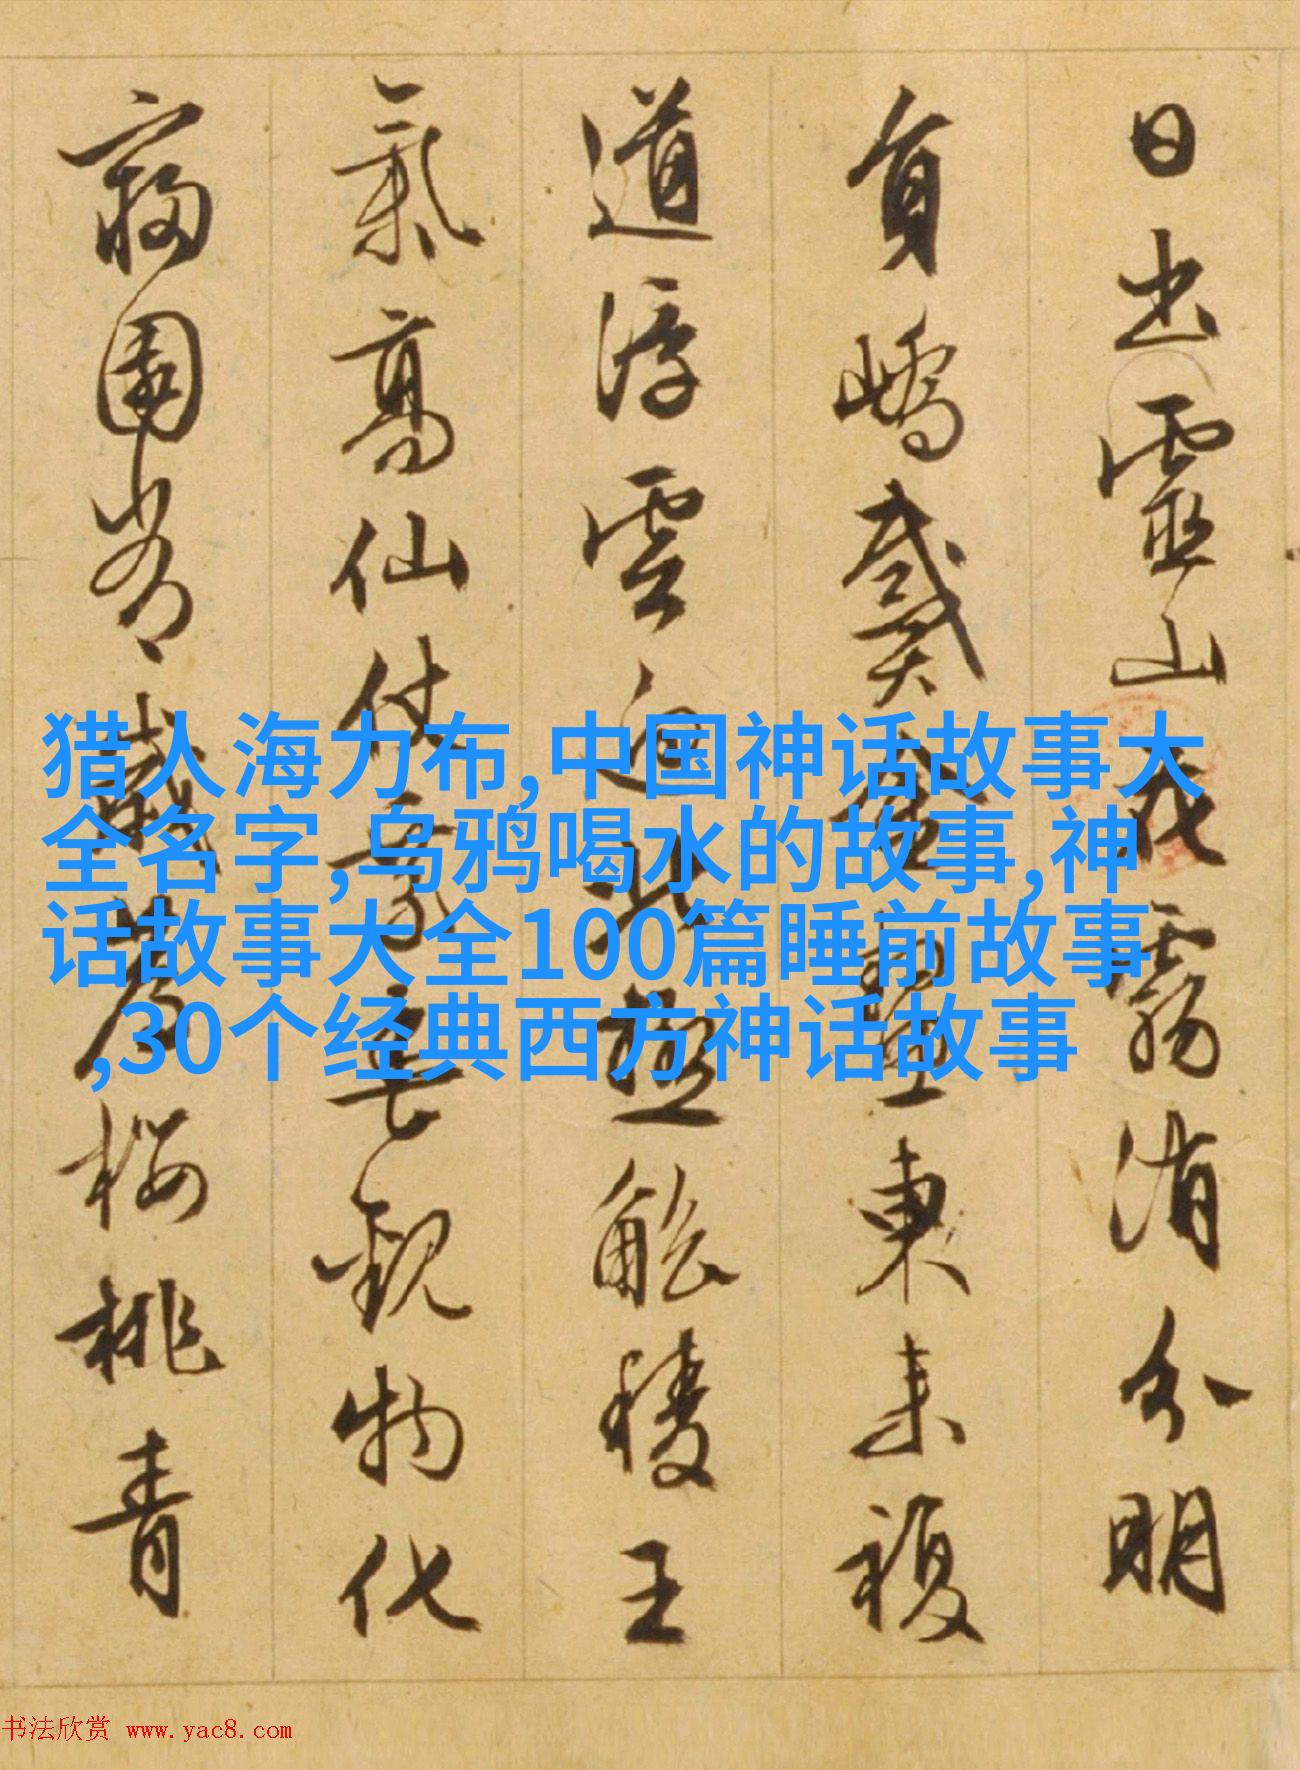 日出靈山霧消分明
負嶠東来複
道浮雲觚稜王
氣高仙仗觀物化
園歲櫻桃青
猎人海力布,中国神话故事大
全名字,乌鸦喝水的故事,神
话故事大全100篇睡前故事
,30个经典西方神话故事
书法欣赏 www.yac8.com